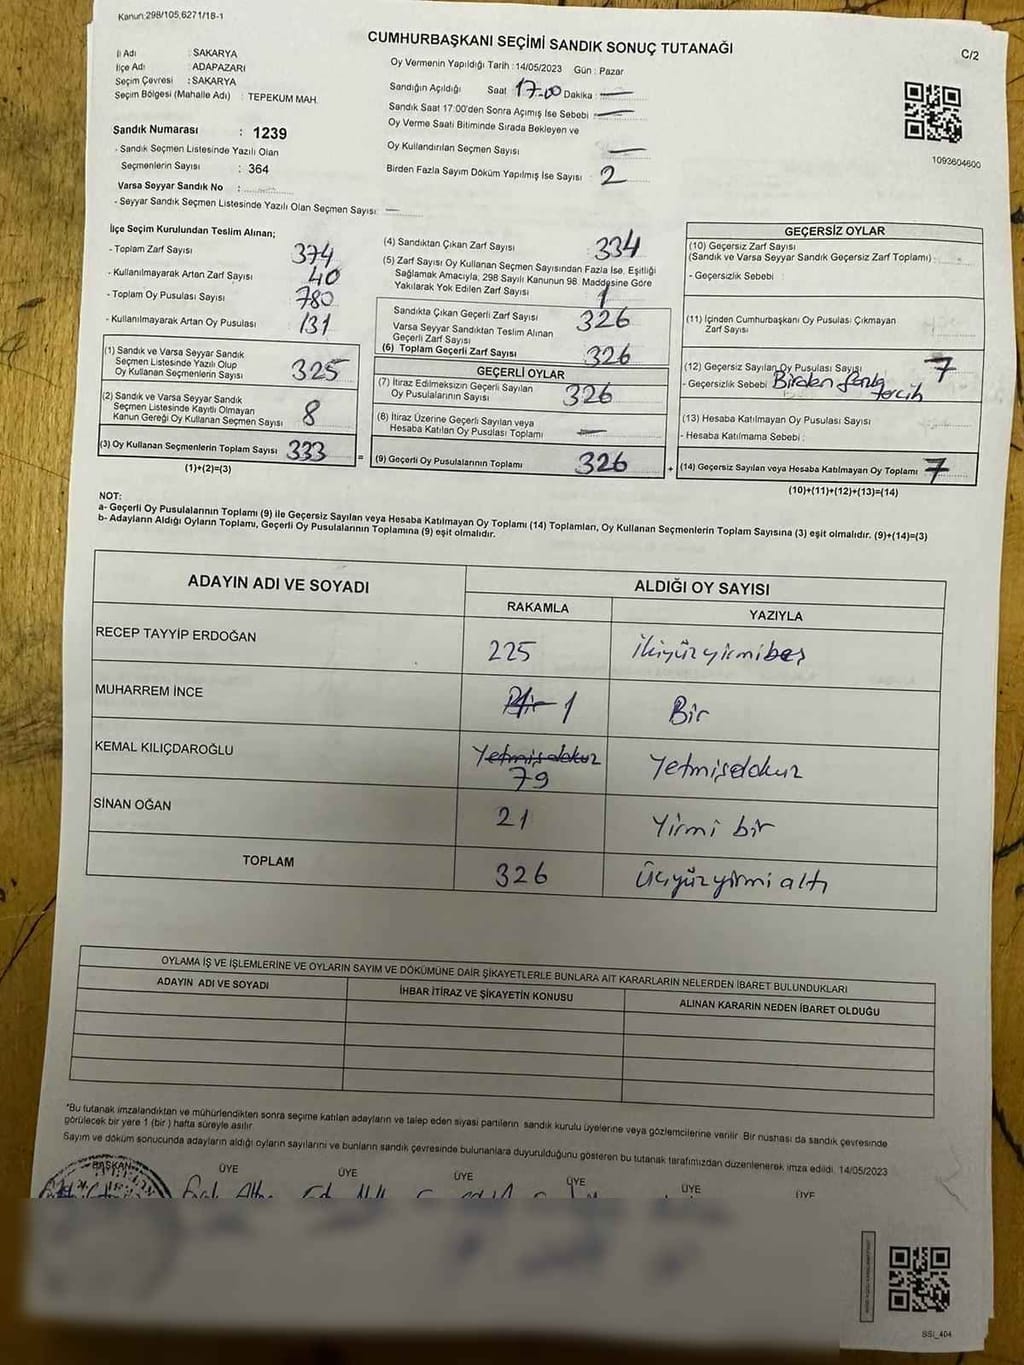 Kanun:298/105,6271/18-1
CUMHURBAŞKANI SEÇİMİ SANDIK SONUÇ TUTANAĞI
C/2
İl Adı : SAKARYA
İlçe Adı : ADAPAZARI
Seçim Çevresi : SAKARYA
Seçim Bölgesi (Mahalle Adı) : TEPEKUM MAH.
Sandık Numarası : 1239
- Sandık Seçmen Listesinde Yazılı Olan
Seçmenlerin Sayısı : 364
Varsa Seyyar Sandık No :
- Seyyar Sandık Seçmen Listesinde Yazılı Olan Seçmen Sayısı: —
Oy Vermenin Yapıldığı Tarih : 14/05/2023 Gün : Pazar
Sandığın Açıldığı Saat 17-00 Dakika : —
Sandık Saat 17:00'den Sonra Açımış İse Sebebi : —
Oy Verme Saati Bitiminde Sırada Bekleyen ve
Oy Kullandırılan Seçmen Sayısı —
Birden Fazla Sayım Döküm Yapılmış İse Sayısı : 2
1093604600
İlçe Seçim Kurulundan Teslim Alınan;
- Toplam Zarf Sayısı 374
- Kullanılmayarak Artan Zarf Sayısı 40
- Toplam Oy Pusulası Sayısı 780
- Kullanılmayarak Artan Oy Pusulası 131
(1) Sandık ve Varsa Seyyar Sandık
Seçmen Listesinde Yazılı Olup
Oy Kullanan Seçmenlerin Sayısı 325
(2) Sandık ve Varsa Seyyar Sandık
Seçmen Listesinde Kayıtlı Olmayan
Kanun Gereği Oy Kullanan Seçmen Sayısı 8
(3) Oy Kullanan Seçmenlerin Toplam Sayısı 333
(1)+(2)=(3)
=
(4) Sandıktan Çıkan Zarf Sayısı 334
(5) Zarf Sayısı Oy Kullanan Seçmen Sayısından Fazla İse, Eşitliği
Sağlamak Amacıyla, 298 Sayılı Kanunun 98. Maddesine Göre
Yakılarak Yok Edilen Zarf Sayısı 1
Sandıkta Çıkan Geçerli Zarf Sayısı 326
Varsa Seyyar Sandıktan Teslim Alınan
Geçerli Zarf Sayısı
(6) Toplam Geçerli Zarf Sayısı 326
GEÇERLİ OYLAR
(7) İtiraz Edilmeksizin Geçerli Sayılan
Oy Pusulalarının Sayısı 326
(8) İtiraz Üzerine Geçerli Sayılan veya
Hesaba Katılan Oy Pusulası Toplamı —
(9) Geçerli Oy Pusulalarının Toplamı 326
+
GEÇERSİZ OYLAR
(10) Geçersiz Zarf Sayısı
(Sandık ve Varsa Seyyar Sandık Geçersiz Zarf Toplamı) :
- Geçersizlik Sebebi :
(11) İçinden Cumhurbaşkanı Oy Pusulası Çıkmayan
Zarf Sayısı
(12) Geçersiz Sayılan Oy Pusulası Sayısı 7
- Geçersizlik Sebebi Birden fazla
tercih
(13) Hesaba Katılmayan Oy Pusulası Sayısı
- Hesaba Katılmama Sebebi :
(14) Geçersiz Sayılan veya Hesaba Katılmayan Oy Toplamı 7
(10)+(11)+(12)+(13)=(14)
NOT:
a- Geçerli Oy Pusulalarının Toplamı (9) ile Geçersiz Sayılan veya Hesaba Katılmayan Oy Toplamı (14) Toplamları, Oy Kullanan Seçmenlerin Toplam Sayısına (3) eşit olmalıdır. (9)+(14)=(3)
b- Adayların Aldığı Oyların Toplamı, Geçerli Oy Pusulalarının Toplamına (9) eşit olmalıdır.
ADAYIN ADI VE SOYADI ALDIĞI OY SAYISI
RAKAMLA YAZIYLA
RECEP TAYYİP ERDOĞAN 225 ikiyüzyirmibeş
MUHARREM İNCE 1 Bir
KEMAL KILIÇDAROĞLU Yetmişdokuz
79 Yetmişdokuz
SİNAN OĞAN 21 Yirmi bir
TOPLAM 326 Üçyüzyirmi altı
OYLAMA İŞ VE İŞLEMLERİNE VE OYLARIN SAYIM VE DÖKÜMÜNE DAİR ŞİKAYETLERLE BUNLARA AİT KARARLARIN NELERDEN İBARET BULUNDUKLARI
ADAYIN ADI VE SOYADI İHBAR İTİRAZ VE ŞİKAYETİN KONUSU ALINAN KARARIN NEDEN İBARET OLDUĞU
*Bu tutanak imzalandıktan ve mühürlendikten sonra seçime katılan adayların ve talep eden siyasi partilerin sandık kurulu üyelerine veya gözlemcilerine verilir. Bir nushası da sandık çevresinde
görülecek bir yere 1 (bir) hafta süreyle asılır
Sayım ve döküm sonucunda adayların aldığı oyların sayılarını ve bunların sandık çevresinde bulunanlara duyurulduğunu gösteren bu tutanak tarafımızdan düzenlenerek imza edildi. 14/05/2023
BAŞKAN ÜYE ÜYE ÜYE ÜYE ÜYE ÜYE
SSİ_404